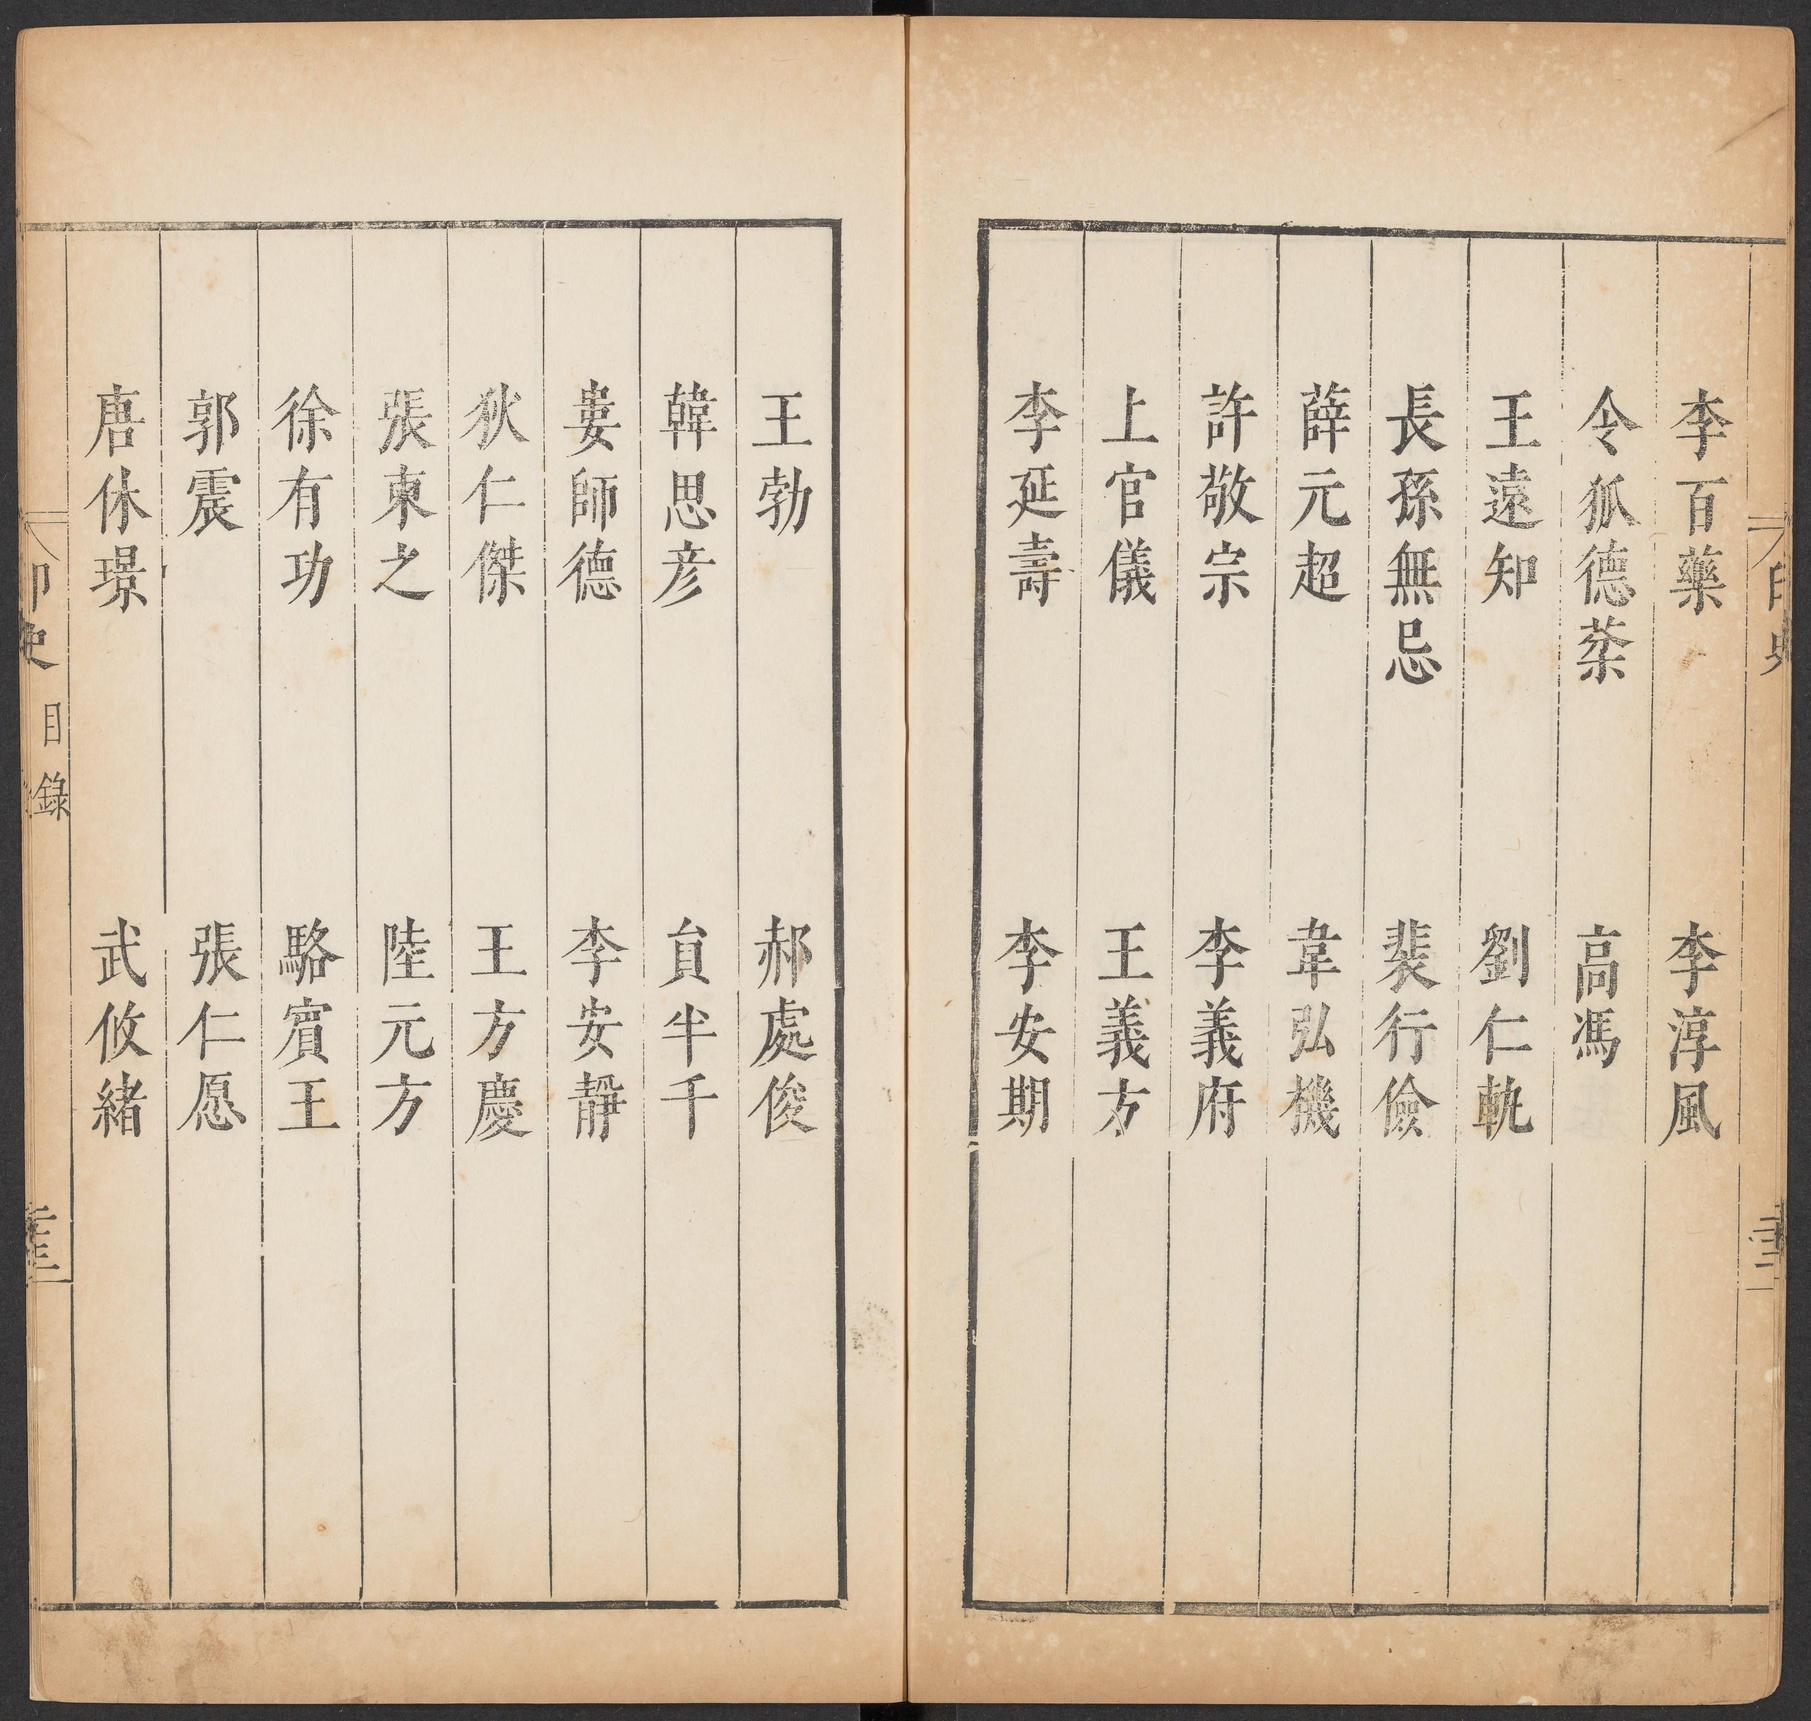 李百藥 李淳風
令狐德棻 高馮
王遠知 劉仁軌
長孫無忌 裴行儉
薛元超 韋弘機
許敬宗 李義府
上官儀 王義方
李延壽 李安期
王勃 郝處俊
韓思彥 貟半千
婁師德 李安靜
狄仁傑 王方慶
張柬之 陸元方
徐有功 駱賓王
郭震 張仁愿
唐休璟 武攸緒
印史 目錄